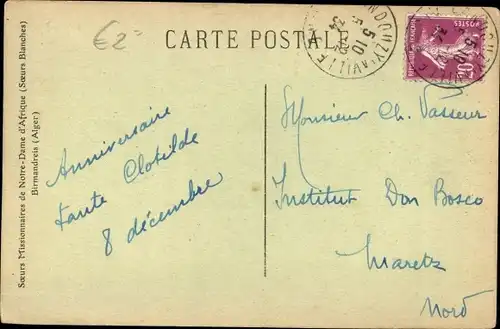 €2=
CARTE POSTALE
Sœurs Missionnaires de Notre-Dame d'Afrique (Sœurs Blanches)
Birmandreis (Alger)
Anniversaire
tante Clotilde
8 décembre
5-10
34
POSTES
Monsieur Ch. Vasseur
Institut Don Bosco
Maretz
Nord